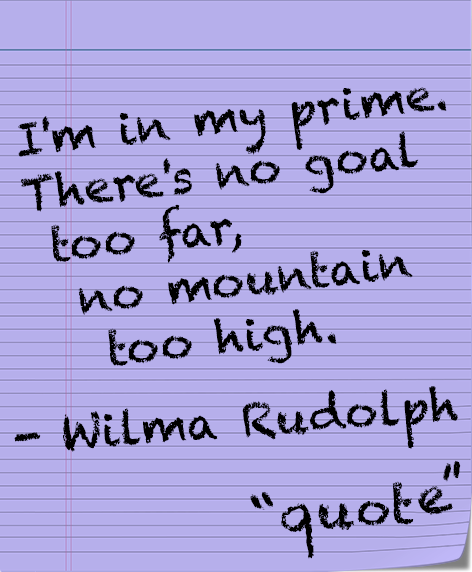 I'm in my prime.
There's no goal
too far,
no mountain
too high.
- Wilma Rudolph
"quote"